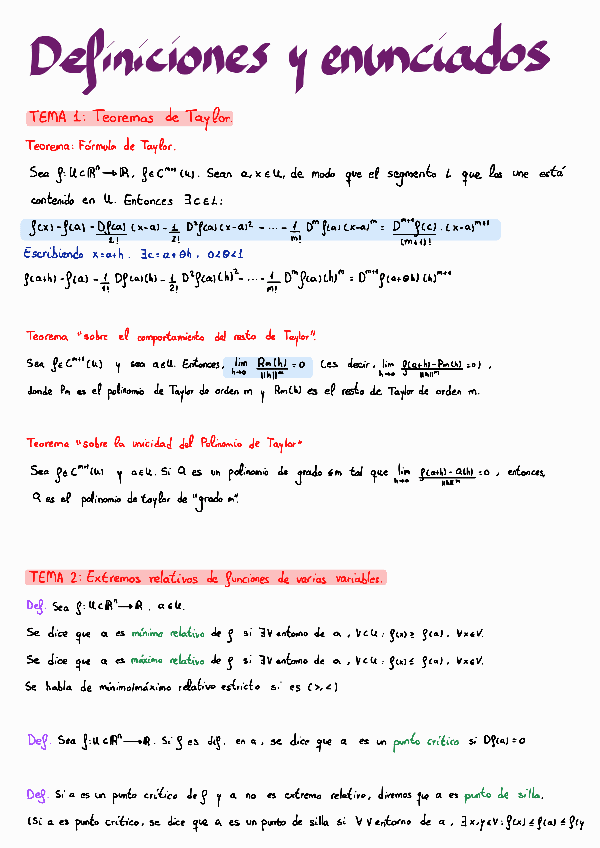 Definiciones y enunciados
TEMA 1: Teoremas de Taylor.
Teorema: Fórmula de Taylor.
Sea f: U⊂ℝⁿ → ℝ, f∈Cᵐ⁺¹(U). Sean a,x∈U, de modo que el segmento L que los une está
contenido en U. Entonces ∃c∈L:
f(x) - f(a) - Df(a)/1! (x-a) - 1/2! D²f(a)(x-a)² - ... - 1/m! Dᵐf(a)(x-a)ᵐ = Dᵐ⁺¹f(c)/(m+1)! · (x-a)ᵐ⁺¹
Escribiendo x=a+h, ∃c=a+θh, 0<θ<1
f(a+h) - f(a) - 1/1! Df(a)(h) - 1/2! D²f(a)(h)² - ... - 1/m! Dᵐf(a)(h)ᵐ = Dᵐ⁺¹f(a+θh)(h)ᵐ⁺¹
Teorema "sobre el comportamiento del resto de Taylor".
Sea f∈Cᵐ⁺¹(U) y sea a∈U. Entonces, lim h→0 Rm(h)/||h||ᵐ = 0 (es decir, lim h→0 f(a+h)-Pm(h)/||h||ᵐ = 0),
donde Pm es el polinomio de Taylor de orden m y Rm(h) es el resto de Taylor de orden m.
Teorema "sobre la unicidad del Polinomio de Taylor"
Sea f∈Cᵐ⁺¹(U) y a∈U. Si Q es un polinomio de grado ≤m tal que lim h→0 f(a+h)-Q(h)/||h||ᵐ = 0, entonces,
Q es el polinomio de taylor de "grado m".
TEMA 2: Extremos relativos de funciones de varias variables.
Def. Sea f: U⊂ℝⁿ → ℝ, a∈U.
Se dice que a es mínimo relativo de f si ∃V entorno de a, V⊂U: f(x)≥ f(a), ∀x∈V.
Se dice que a es máximo relativo de f si ∃V entorno de a, V⊂U: f(x)≤ f(a), ∀x∈V.
Se habla de mínimo/máximo relativo estricto si es (>,<)
Def. Sea f: U⊂ℝⁿ → ℝ. Si f es dif. en a, se dice que a es un punto crítico si Df(a)=0
Def. Si a es un punto crítico de f y a no es extremo relativo, diremos que a es punto de silla.
(Si a es punto crítico, se dice que a es un punto de silla si ∀V entorno de a, ∃x,y∈V: f(x) ≤ f(a) ≤ f(y